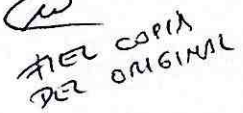 FIEL COPIA
DEL ORIGINAL